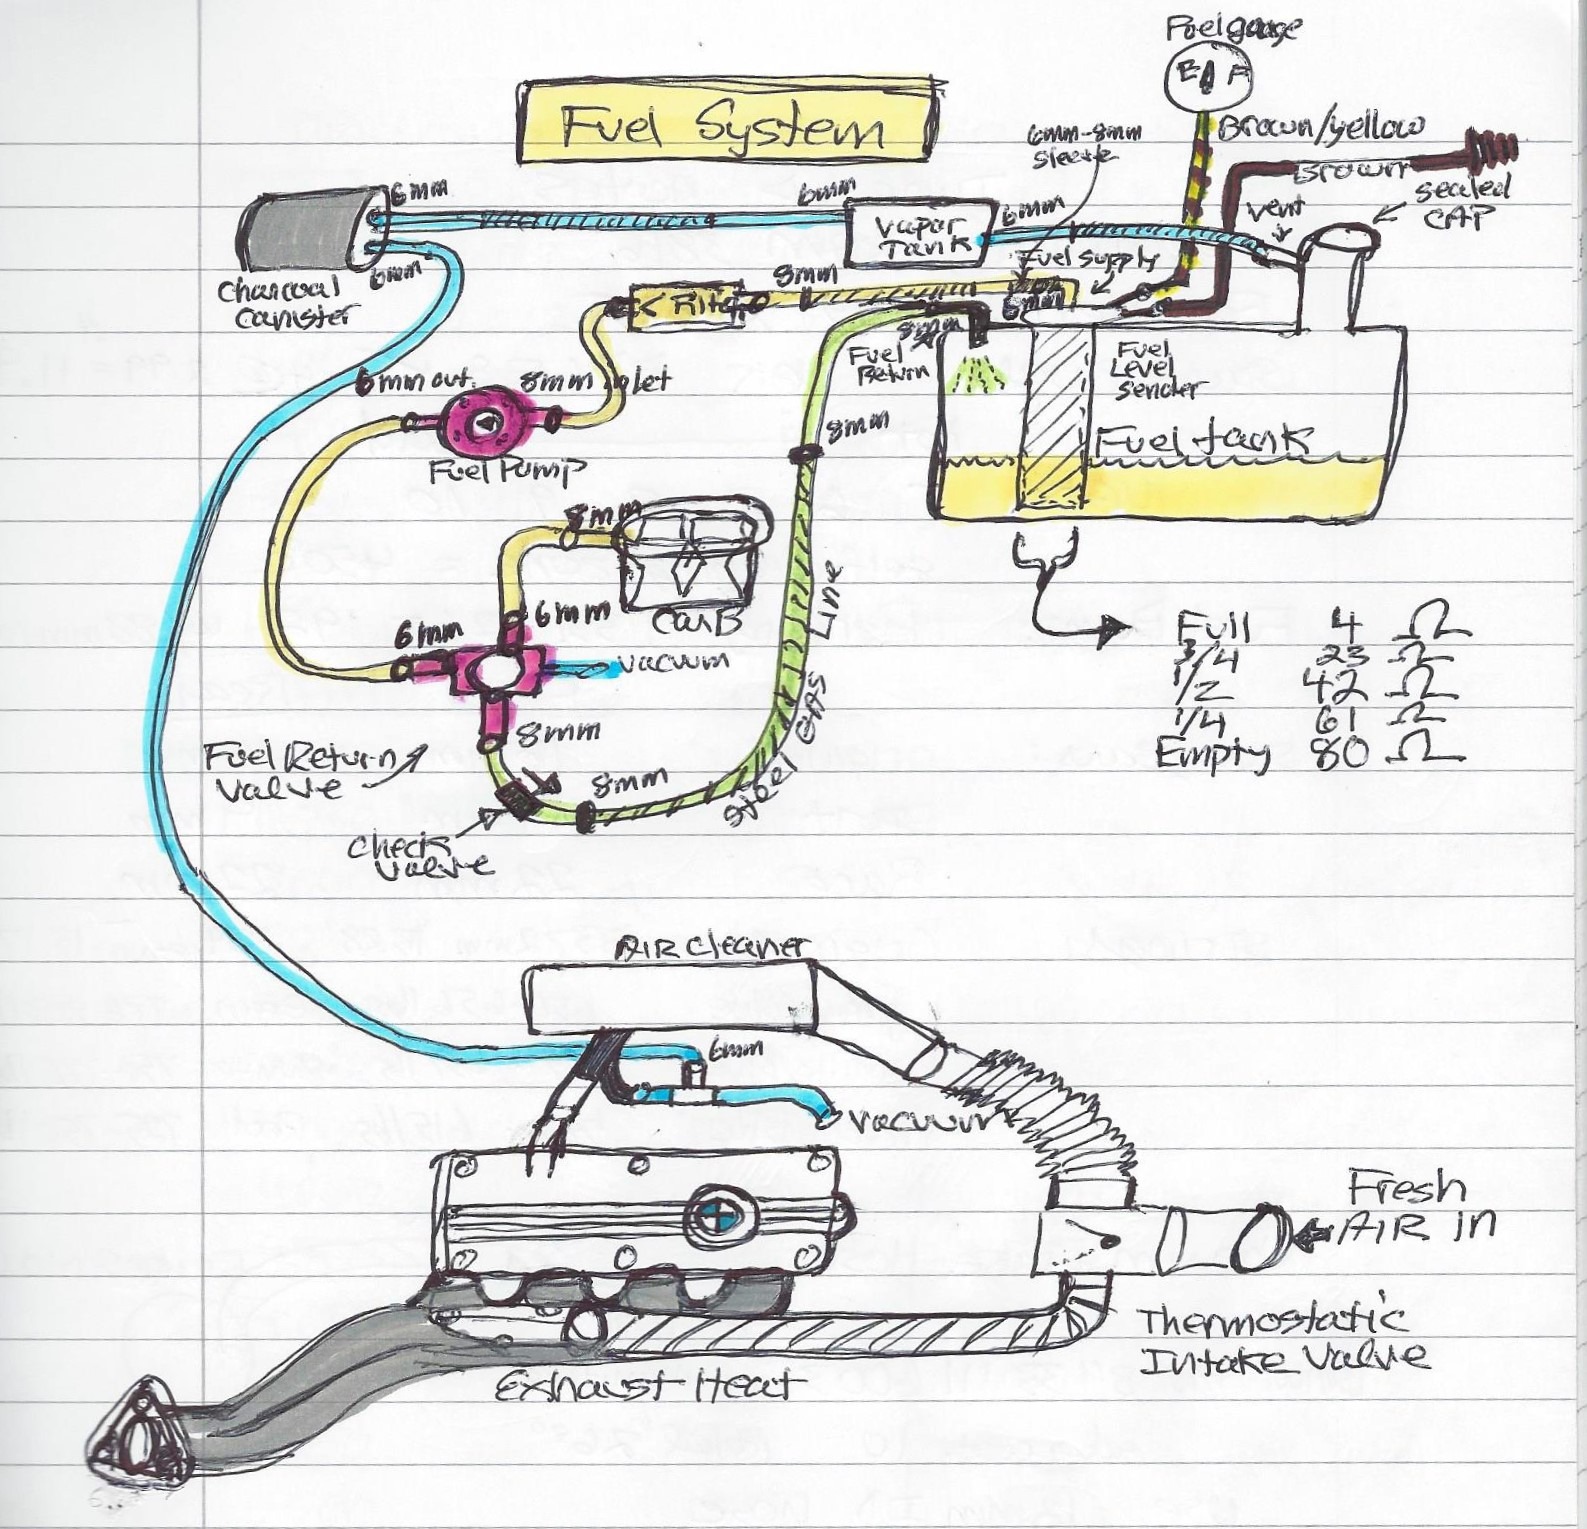 Fuel gauge
E F
Fuel System
Brown/yellow
6mm-8mm
Sleeve
Brown
sealed
CAP
6mm
6mm
Vapor
Tank
6mm
vent
6mm
Charcoal
Canister
< Filter
8mm
Fuel Supply
6mm
8mm
Fuel
Return
Fuel
Level
Sender
6mm out
8mm inlet
Fuel Pump
8mm
Fuel tank
8mm
CarB
6mm
6mm
vacuum
8mm
Fuel Return
Valve
Check
Valve
8mm
Steel GAS Line
Full 4 Ω
3/4 23 Ω
1/2 42 Ω
1/4 61 Ω
Empty 80 Ω
AIR Cleaner
6mm
Vacuum
Fresh
AIR in
Thermostatic
Intake Valve
Exhaust Heat